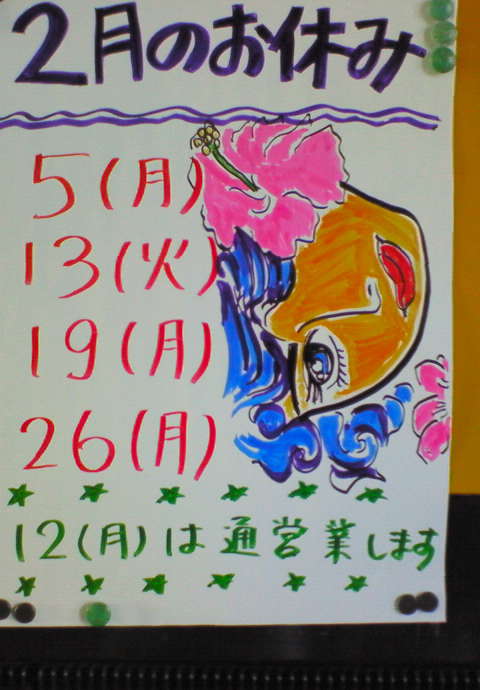 2月のお休み
5(月)
13(火)
19(月)
26(月)
12(月)は通営業します